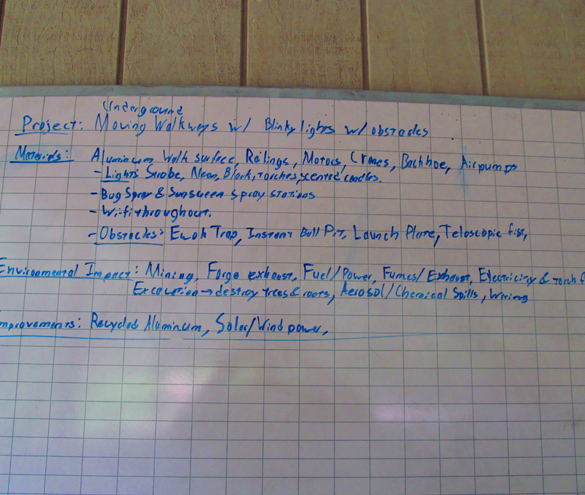 Underground
Project: Moving Walkways w/ Blinky lights w/ obstacles
Materials: Aluminum Walk surface, Railings, Motors, Cranes, Backhoe, Air pumps
- Lights: Strobe, Neon, Black, torches, scented candles.
- Bug Spray & Sunscreen spray stations
- Wifi throughout.
- Obstacles: Ewok Trap, Instant Ball Pit, Launch Plate, Teloscopic fist,
Environmental Impact: Mining, Forge exhaust, Fuel/Power, Fumes/Exhaust, Electricity & torch
Excavation → destroy trees & roots, Aerosol/Chemical Spills, Wiring
mprovements: Recycled Aluminum, Solar/Wind power,